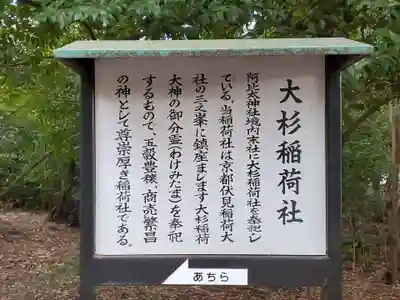 大杉稲荷社
阿比太神社境内末社に大杉稲荷社を奉祀し
ている。当稲荷社は京都伏見稲荷大
社の三之峯に鎮座まします大杉稲荷
大神の御分霊(わけみたま)を奉祀
するもので、五穀豊穣、商売繁昌
の神として尊崇厚き稲荷社である。
あちら